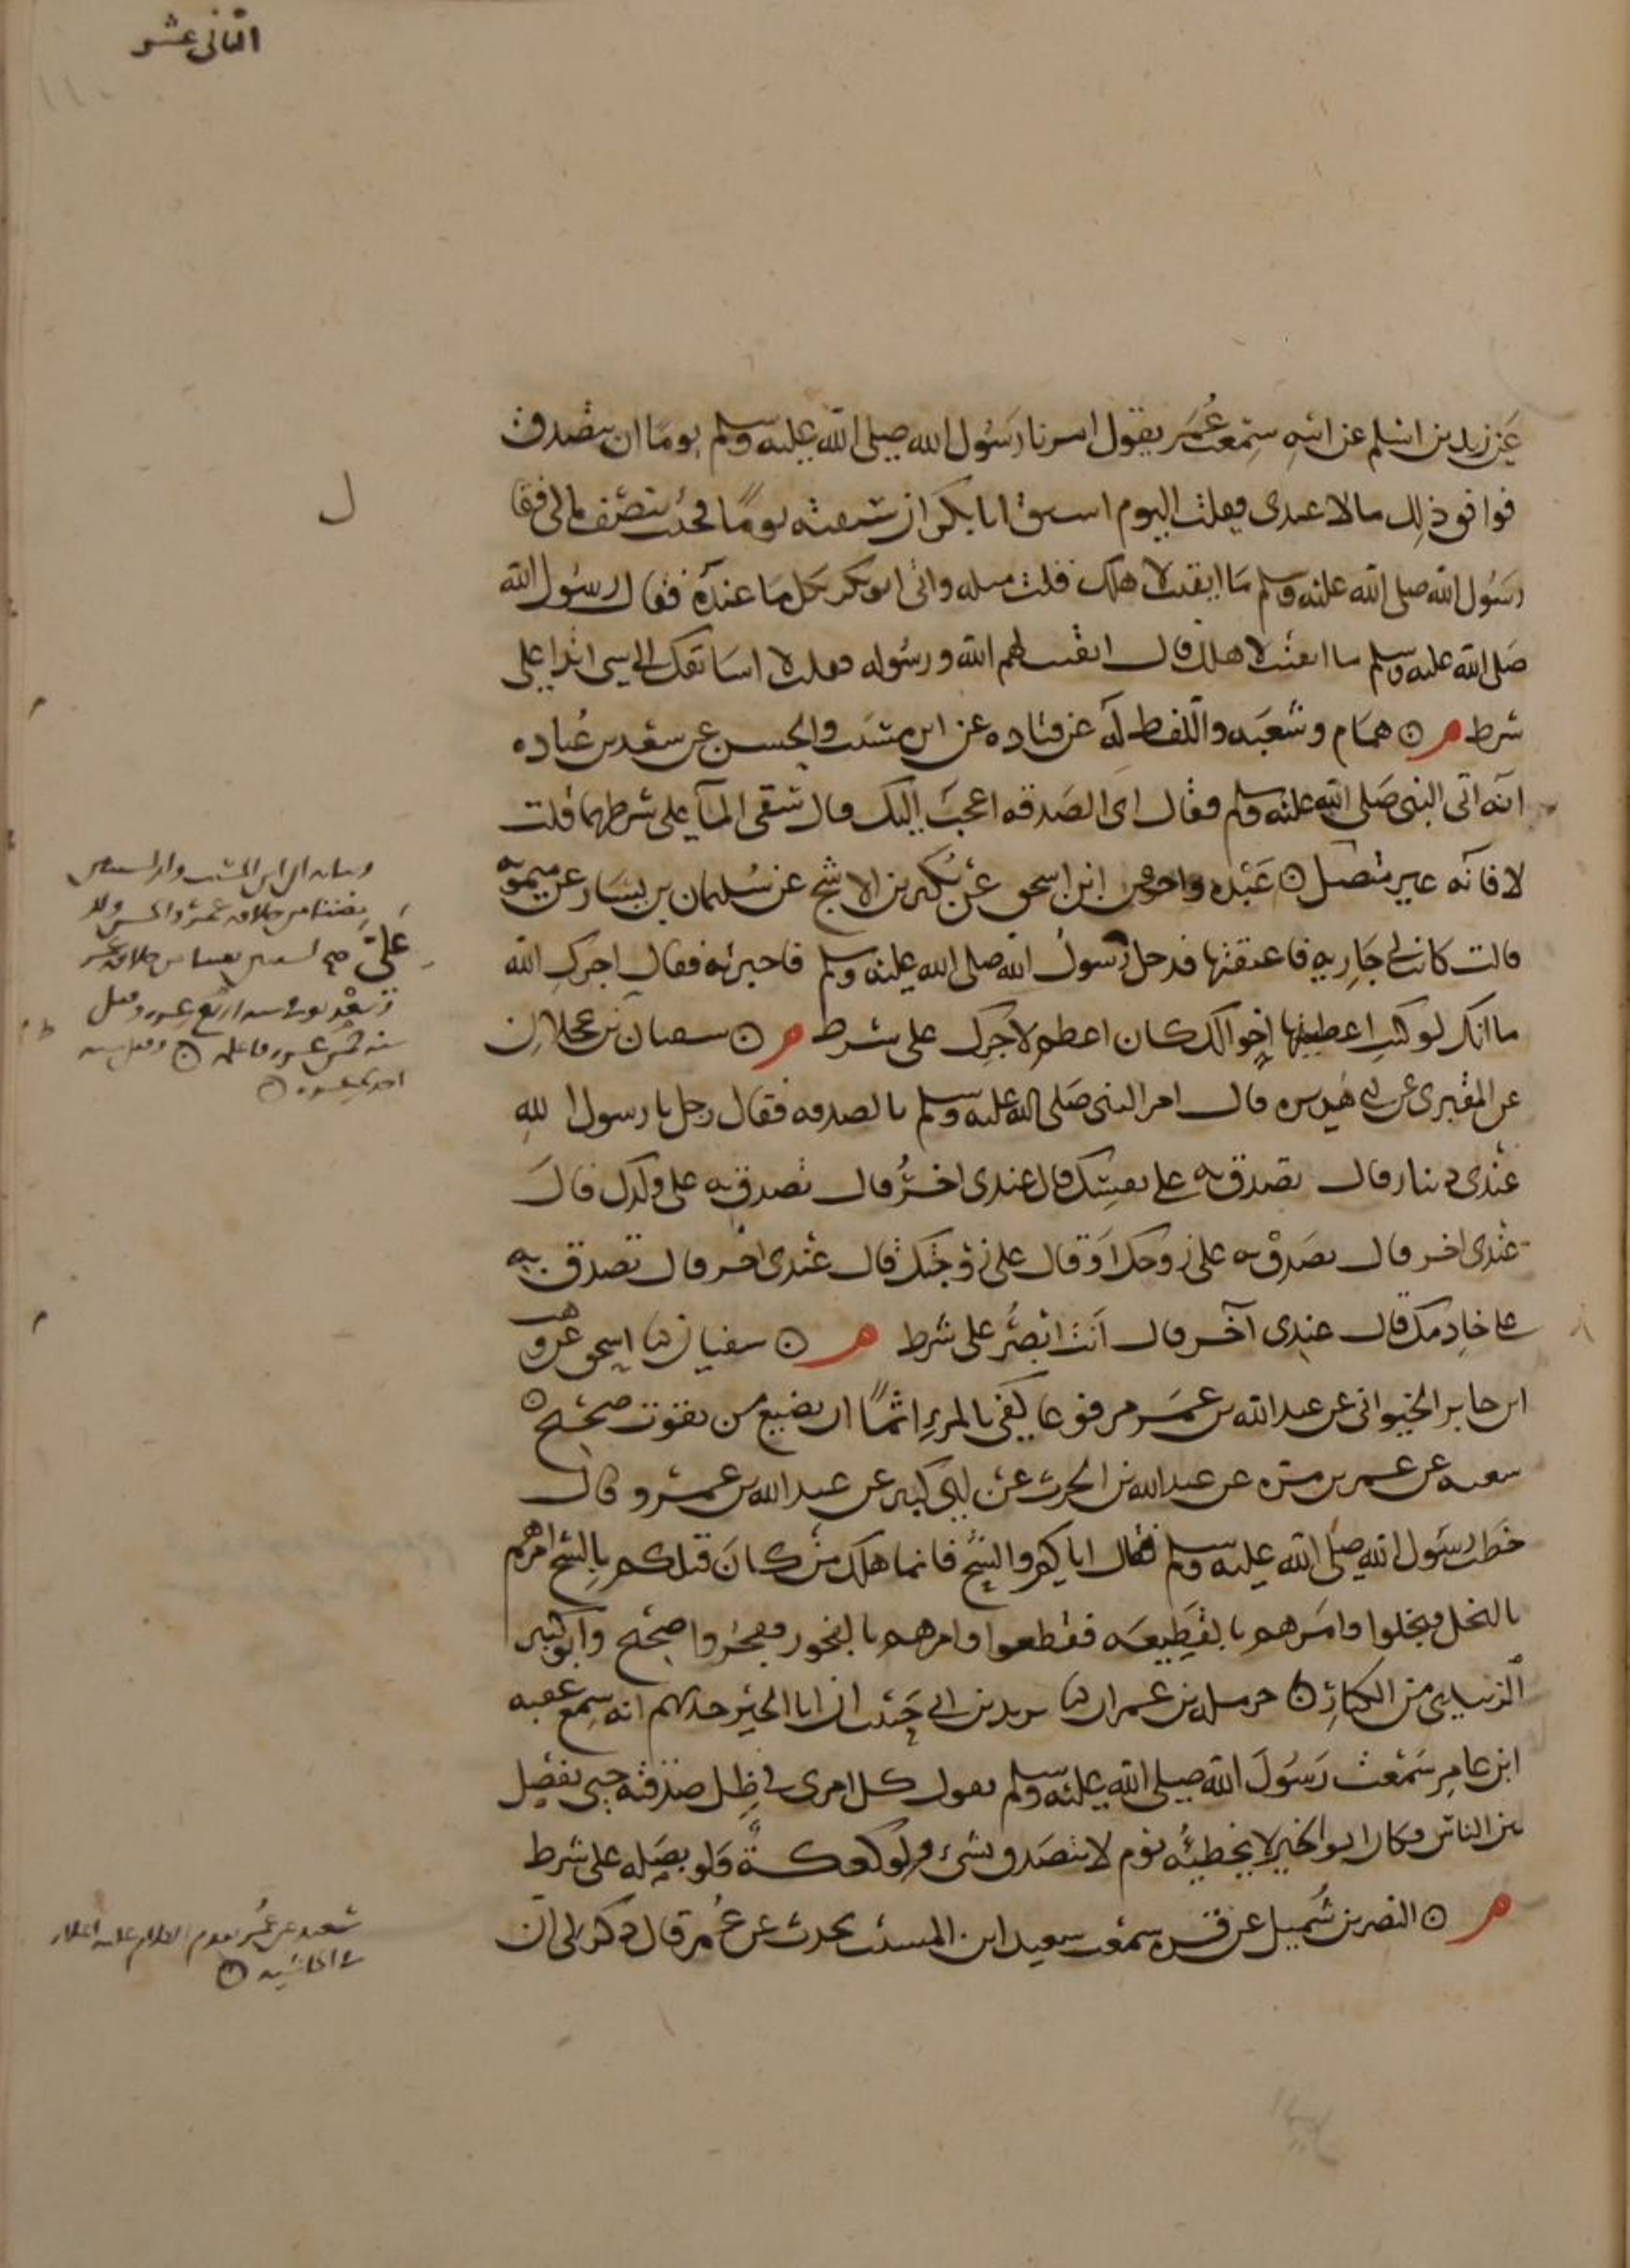 الثاني عشر
عن زيد بن اسلم عن ابيه سمعت عمر يقول امرنا رسول الله صلى الله عليه وسلم يوما ان نتصدق
فوافق ذلك مالا عندي فقلت اليوم اسبق ابا بكر ان سبقته يوما فجئت بنصف مالي فقا
رسول الله صلى الله عليه وسلم ما ابقيت لاهلك قلت مثله واتى ابو بكر بكل ما عنده فقال رسول الله
صلى الله عليه وسلم ما ابقيت لاهلك قال ابقيت لهم الله ورسوله فقلت لا اسابقك الى شي ابدا على
شرط م ۞ همام وشعبه واللفظ له عن قتاده عن ابن مسيب والحسن عن سعد بن عباده
انه اتى النبي صلى الله عليه وسلم فقال اي الصدقه اعجب اليك قال سقي الماء على شرطهما قلت
لا فانه غير متصل ۞ عبده واخر عن ابن اسحق عن بكير بن الاشج عن سليمان بن يسار عن ميمونه
قالت كانت لي جاريه فاعتقتها فدخل رسول الله صلى الله عليه وسلم فاخبرته فقال اجرك الله
ما انك لو كنت اعطيتها اخوالك كان اعظم لاجرك على شرط م ۞ سفيان عن بن عجلان
عن المقبري عن ابي هريره قال امر النبي صلى الله عليه وسلم بالصدقه فقال رجل يا رسول الله
عندي دينار قال تصدق به على نفسك قال عندي اخر قال تصدق به على ولدك قال
عندي اخر قال تصدق به على زوجك او قال على زوجتك قال عندي اخر قال تصدق به
على خادمك قال عندي آخر قال انت ابصر على شرط م ۞ سفيان ثنا ابو اسحق عن وهب
ابن جابر الخيواني عن عبد الله بن عمر مرفوعا كفى بالمرء اثما ان يضيع من يقوت صحيح ۞
شعبه عن عمر بن مره عن عبد الله بن الحرث عن ابي كثير عن عبد الله بن عمرو قال
خطب رسول الله صلى الله عليه وسلم فقال اياكم والشح فانما هلك من كان قبلكم بالشح امرهم
بالبخل فبخلوا وامرهم بالقطيعه فقطعوا وامرهم بالفجور ففجروا صحيح وابو كثير
الزبيدي من الكبار ۞ حرمله بن عمران ثنا يزيد بن ابي حبيب ان ابا الخير حدثهم انه سمع عقبه
ابن عامر سمعت رسول الله صلى الله عليه وسلم يقول كل امرى في ظل صدقته حتى يفصل
بين الناس وكان ابو الخير لا يخطيه يوم لا يتصدق بشيء ولو كعكة ولو بصله على شرط
م ۞ النضر بن شميل عن قره سمعت سعيد ابن المسيب يحدث عن عمر قال ذكر لي ان